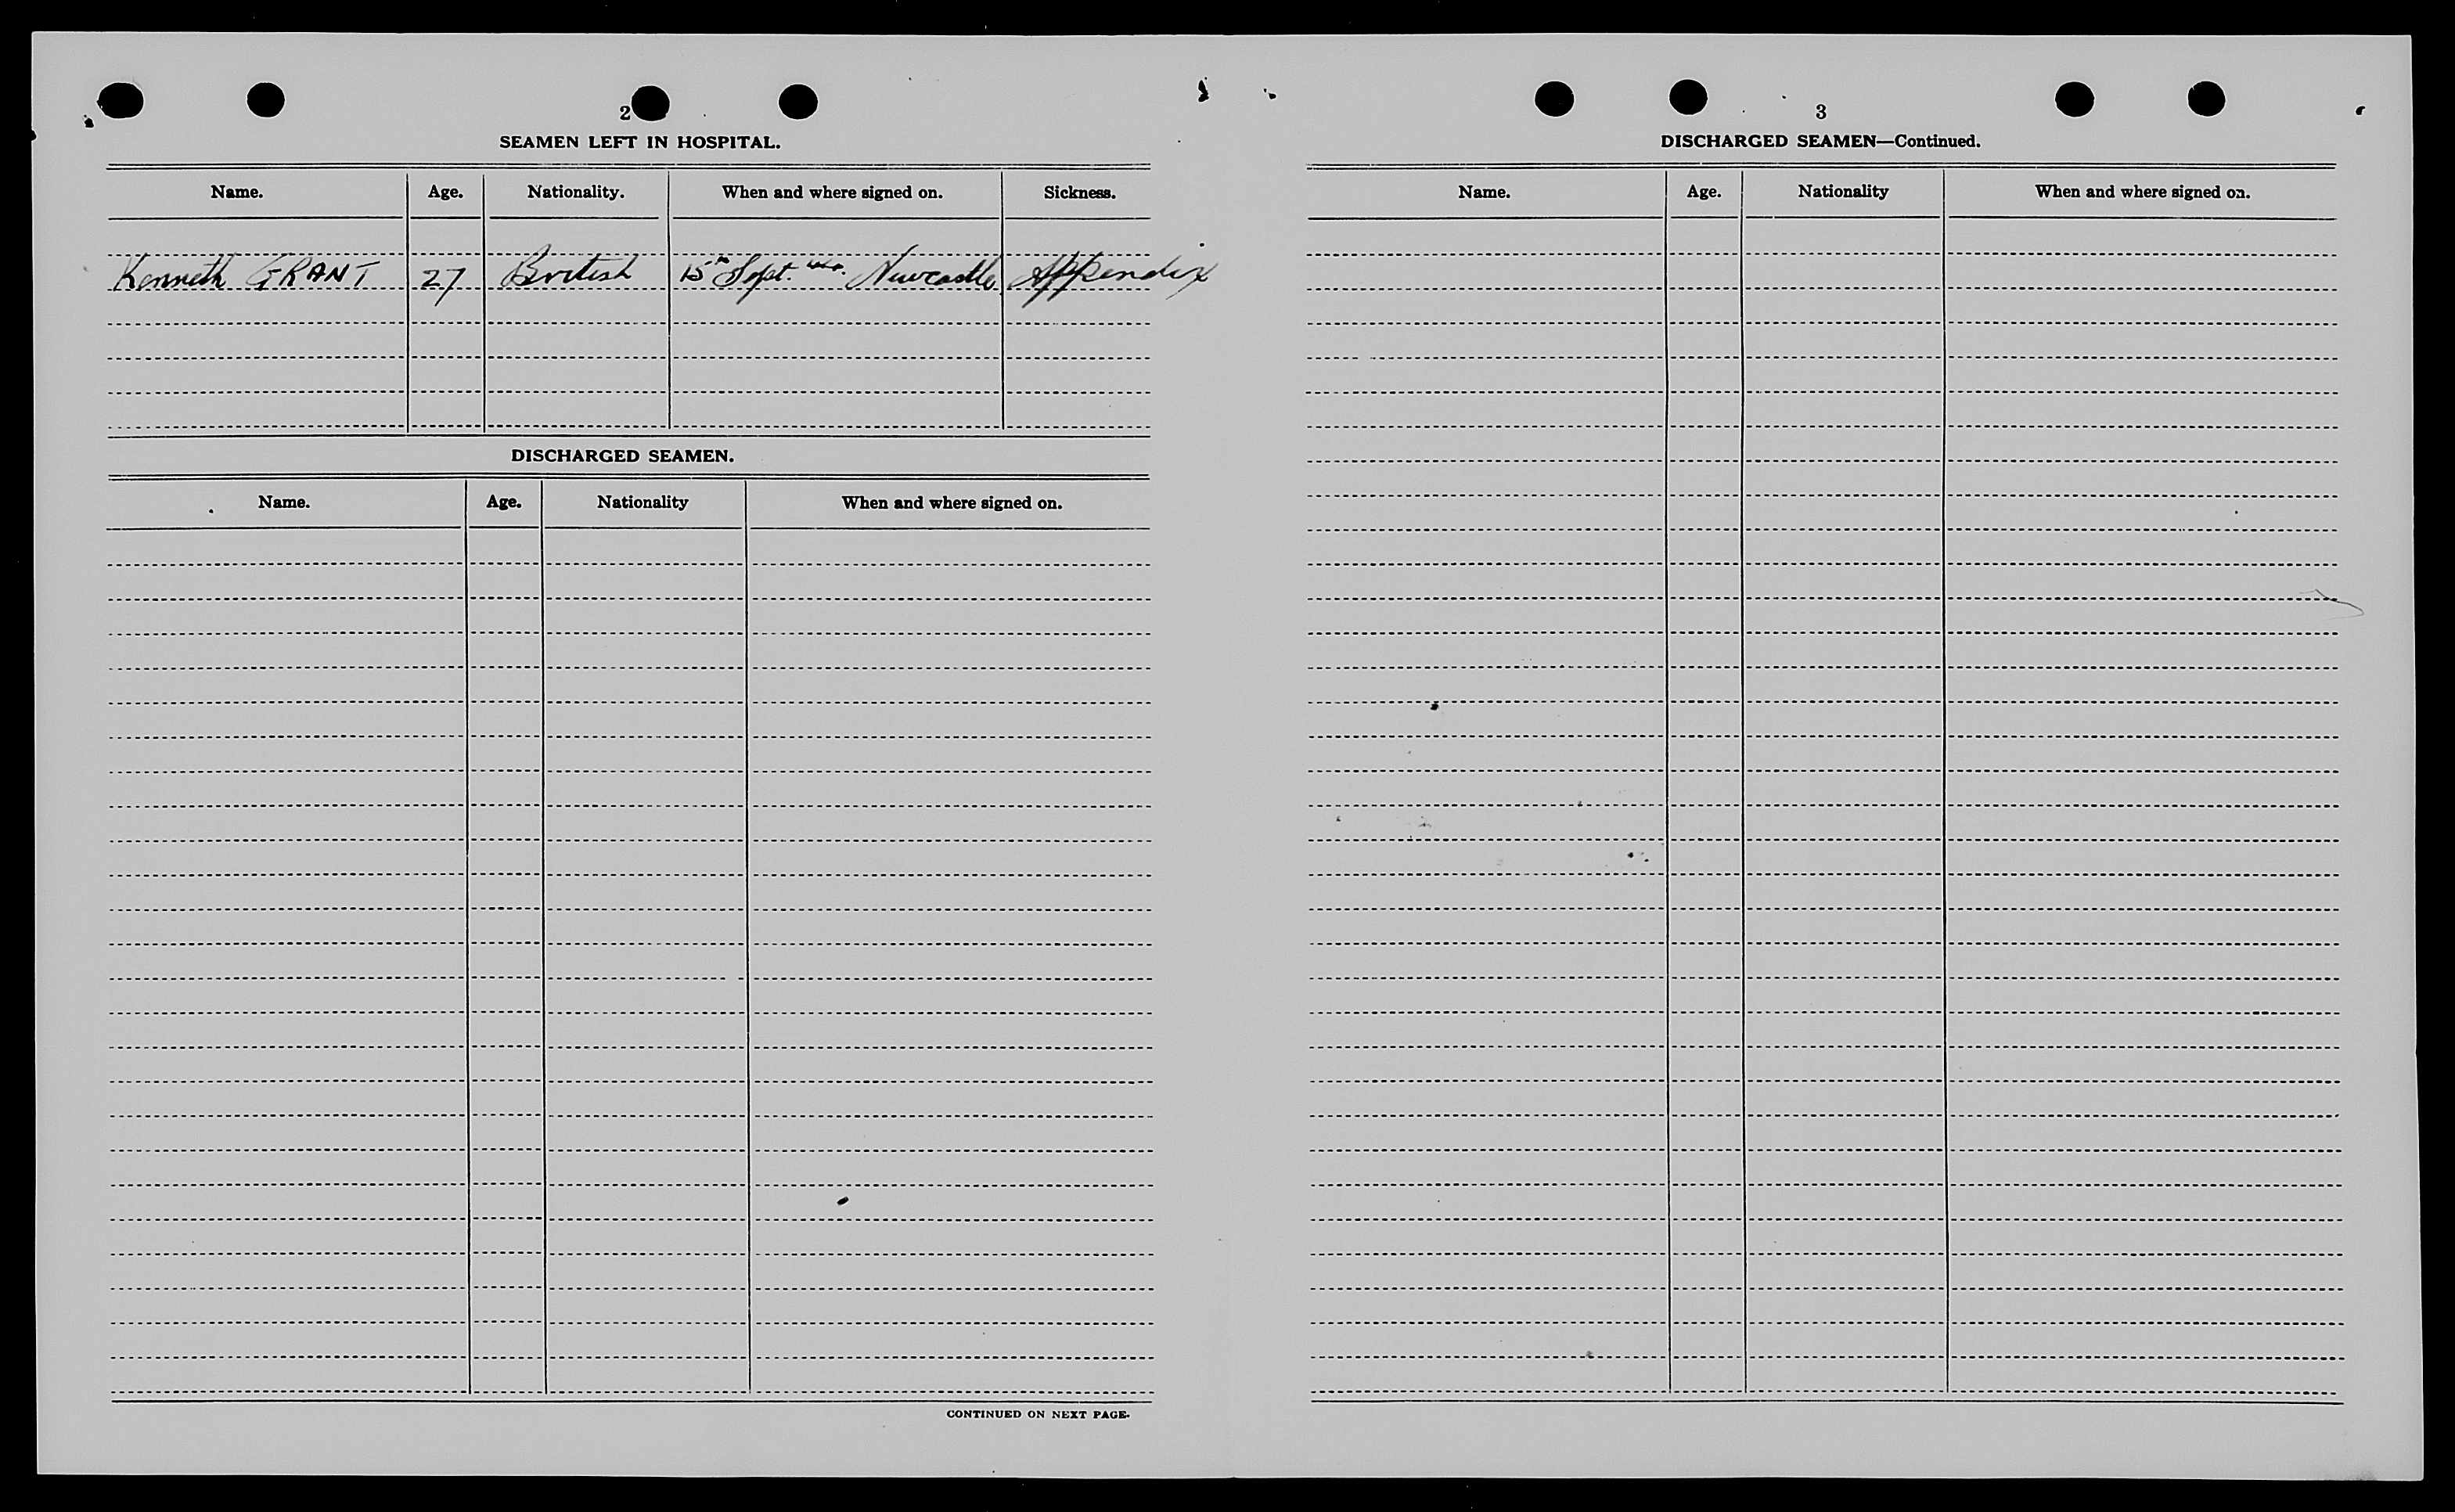 2
SEAMEN LEFT IN HOSPITAL.
Name. Age. Nationality. When and where signed on. Sickness.
Kenneth GRANT 27 British 15th Sept. Newcastle Appendix
DISCHARGED SEAMEN.
Name. Age. Nationality When and where signed on.
CONTINUED ON NEXT PAGE.
3
DISCHARGED SEAMEN—Continued.
Name. Age. Nationality When and where signed on.